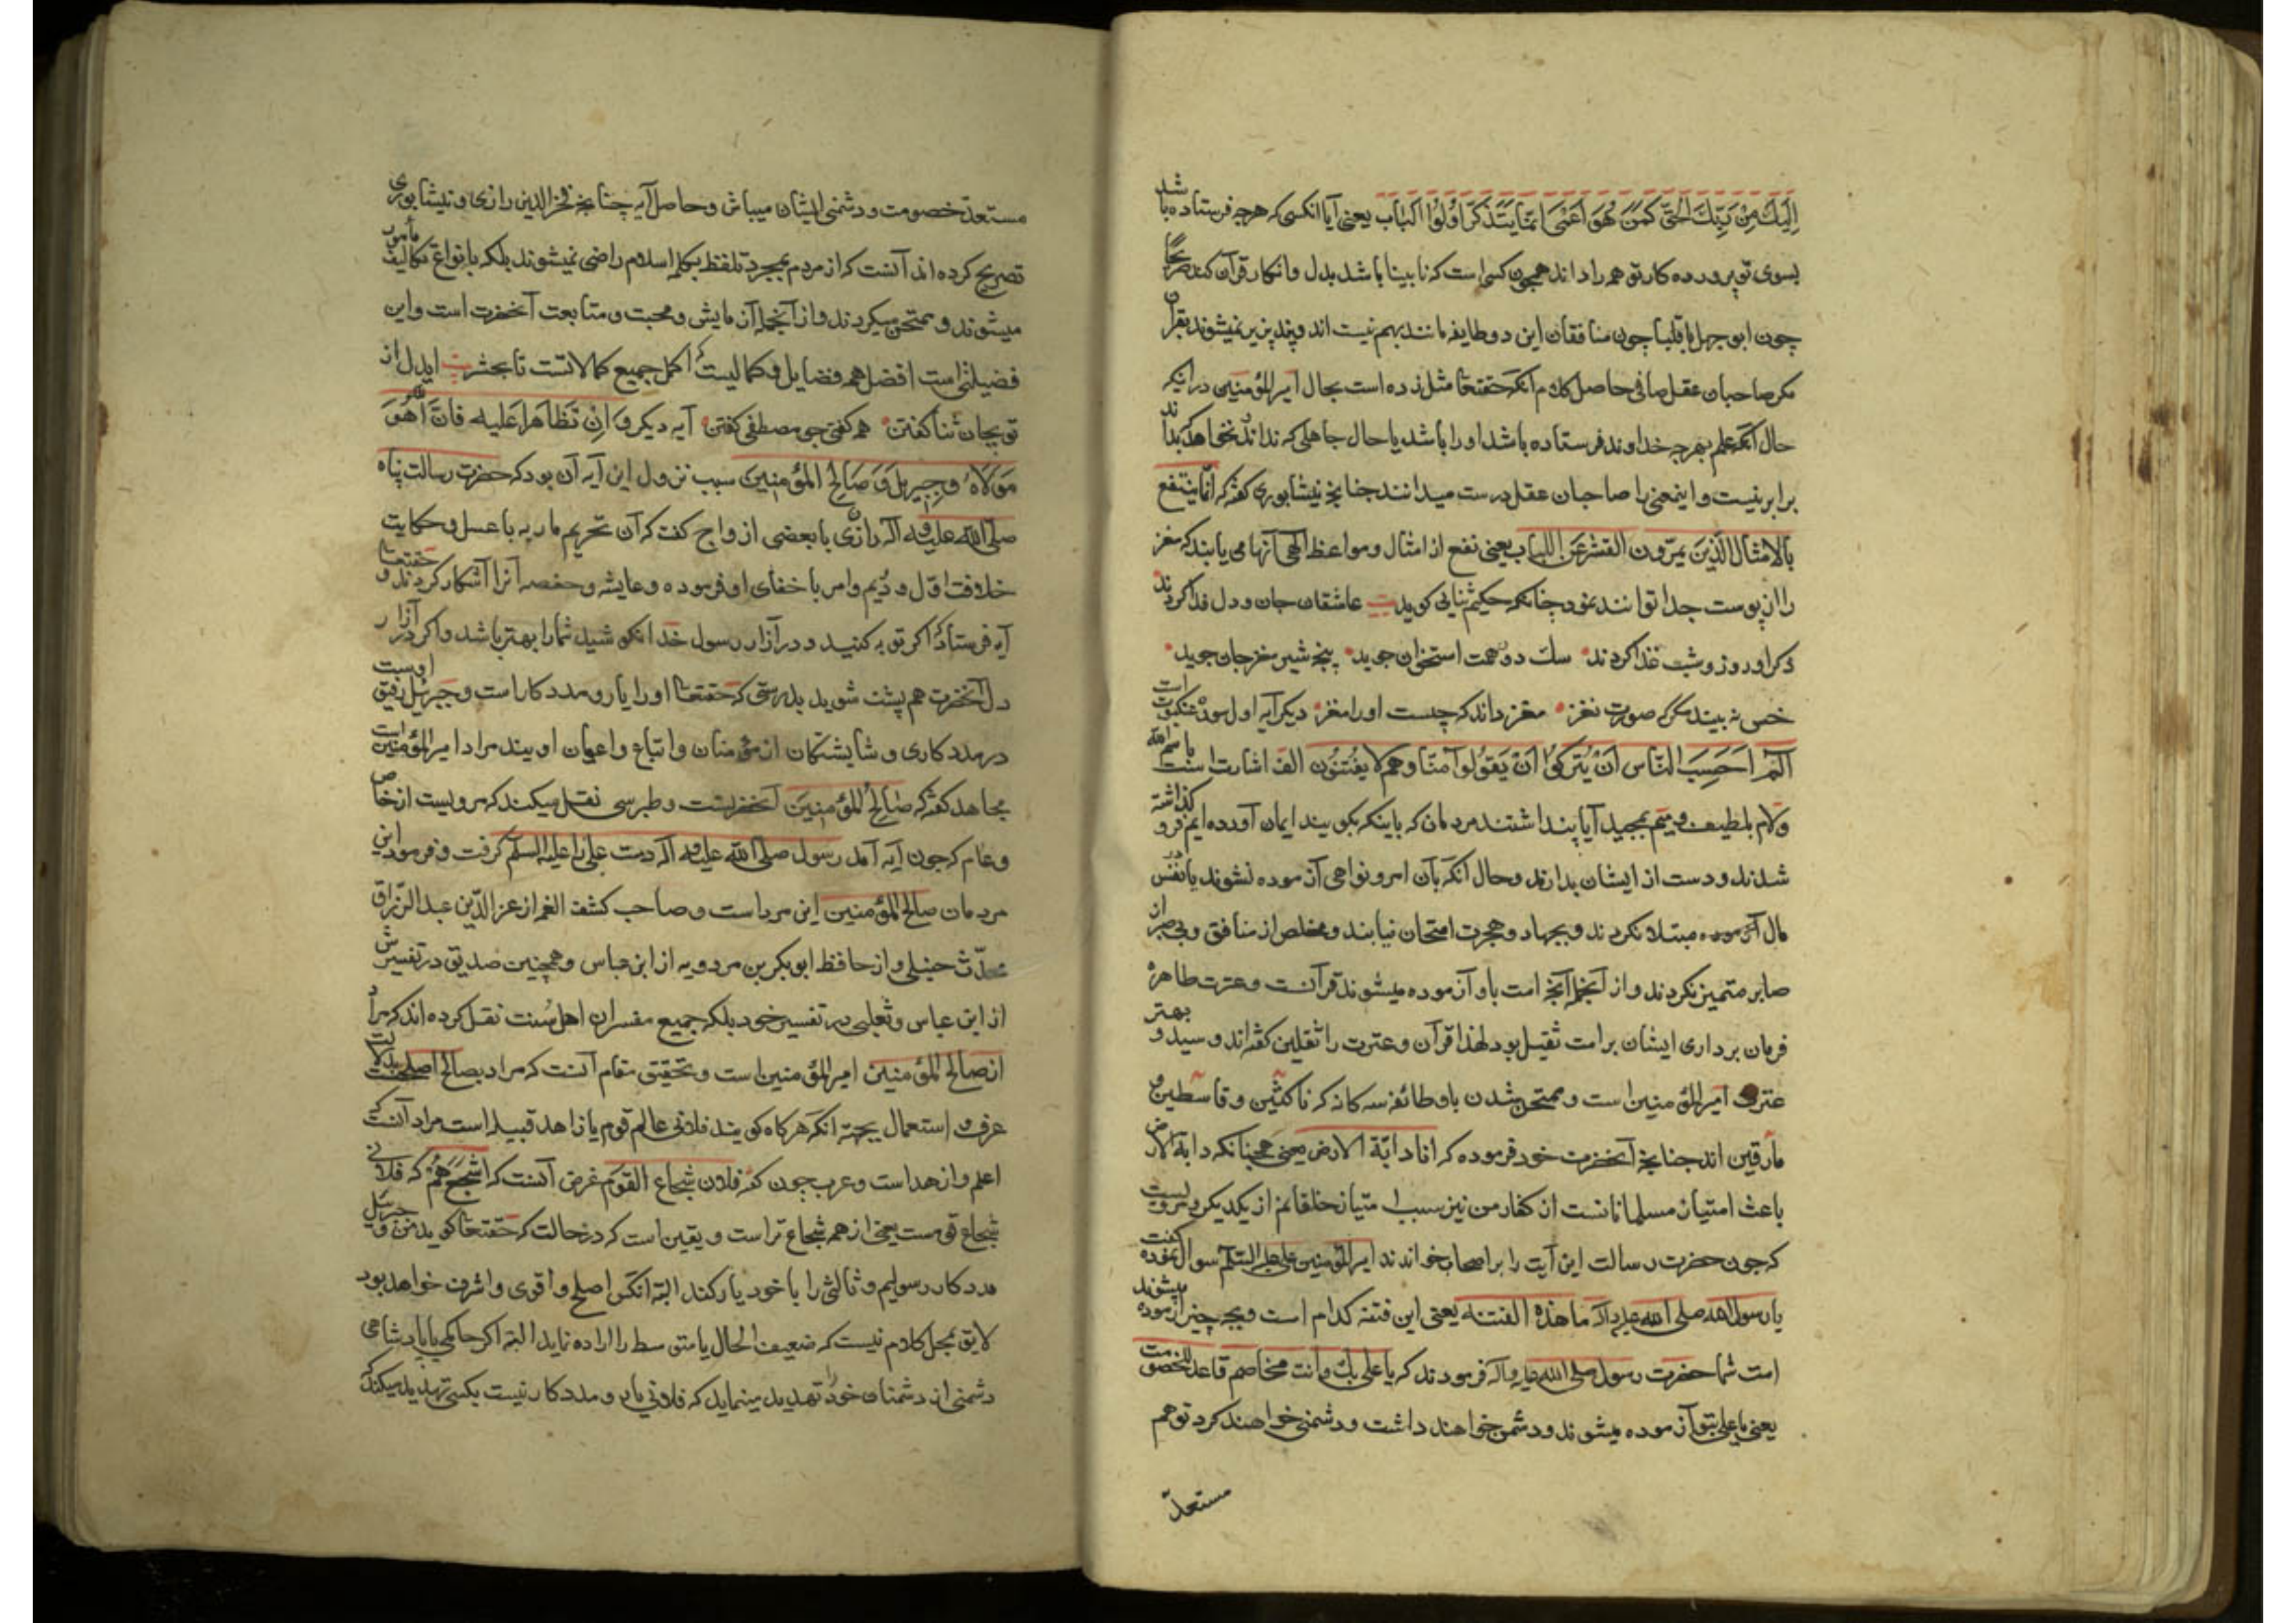 اِلَیْكَ مِنْ رَبِّكَ الْحَقُّ كَمَنْ هُوَ اَعْمٰی اِنَّمَا یَتَذَكَّرُ اُولُوا الباب یعنی آیا انكسی كه هرچه فرستاده با شد
بسوی تو پرورده كار تو همه را داند همچون كسی است كه نابینا باشد بدل و انكار قرآن كند صریحًا
چون ابو جهل یا قلبا چون منافقان این دو طایفه مانند بهم نیست اند و پند پزیر نمیشوند بقرآن
مكر صاحبان عقل صافی حاصل كلام آنكه حقتعا مثل زده است بحال امیر المؤمنین در آنكه
حال آنكه علم بهرچه خداوند فرستاده باشد او را باشد یا حال جاهلی كه نداند نخواهد كه بداند
برابر نیست و اینمعنی را صاحبان عقل درست میدانند چنانچه نیشابوری كفته كه انما ینتفع
بالامثال الّذین یمرّون القشر عن اللباب یعنی نفع از امثال و مواعظ الهی آنها می یابند كه مغز
را از پوست جدا توانند نمود چنانكه حكیم ثنائی كوید بیت عاشقان جان و دل فدا كردند
ذكر او روز و شب غذا كردند سك دون همت استخوان جوید پنجه شیر مغز جان جوید
خس نه بیند مكر كه صورت نغز مغز داند كه چیست او را مغز دیكر آیه اول سورهٔ عنكبوت است
الٓمٓ اَحَسِبَ النّاس اَنْ یُتْرَكُوا اَنْ یَقُولُوا آمَنّا وهم لا یفْتَنُون الف اشارت است باسم الله
ولام بلطیف و میم بمجید آیا پنداشتند مردمان كه باینكه بكویند ایمان آورده ایم فرو كذاشته
شدند و دست از ایشان بدارند و حال آنكه بآن امر و نواهی آزموده نشوند یا در نفس
مال آزموده مبتلا نكردند و بجهاد و هجرت امتحان نیابند و مخلص از منافق و بی صبر از
صابر متمیز نكردند و از آنجمله آنچه امت باو آزموده میشوند قرآنست و عترت طاهره
فرمان برداری ایشان بر امت ثقیل بود لهذا قرآن و عترت را ثقلین كفته اند و سید و بهتر
عترت امیر المؤمنین است و ممتحن شدن باو طائفه سه كانه كه ناكثین و قاسطین و
مارقین اند چنانچه آنحضرت خود فرموده كه انا دابّة الارض یعنی همچنانكه دابة الارض
باعث امتیاز مسلمانانست از كفار من نیز سبب امتیاز خلقانم از یكدیكر و مرویست
كه چون حضرت رسالت این آیت را بر اصحاب خواندند امیر المؤمنین علی علیه السّلم سوال نموده كفت
یا رسول الله صلی الله علیه وآله ما هذه الفتنه یعنی این فتنه كدام است و بچه چیز آزموده میشوند
امت شما حضرت رسول صلی الله علیه وآله فرمودند كه یا علی بك وانت مخاصم فاعد للخصومت
یعنی یا علی بتو آزموده میشوند و دشمن خواهند داشت و دشمنی خواهند كرد تو هم
مستعدّ
مستعدّ خصومت و دشمنی ایشان میباش و حاصل آیه چنانچه فخر الدین رازی و نیشابوری
تصریح كرده اند آنست كه از مردم بمجرد تلفظ بكلمه اسلام راضی نمیشوند بلكه بانواع تكالیف مأمور
میشوند و ممتحن میكردند و از آنجمله آزمایش و محبت و متابعت آنحضرت است و این
فضیلتی است افضل همه فضایل و كمالیست كه اكمل جمیع كمالاتست تا بحشر بیت ایدل از
تو بجان ثنا كفتن هم كفتی جی مصطفی كفتن آیه دیكر وَ اِنْ تَظاهَرا عَلَیْه فَاِنَّ اللهَ هُوَ
مَوْلاهُ وجِبریلُ وَ صالِحُ المؤمِنین سبب نزول این آیه آن بود كه حضرت رسالت پناه
صلی الله علیه وآله رازی با بعضی از ازواج كفت كه آن تحریم ماریه یا عسل و حكایت
خلافت اوّل و دُیم و امر باخفای او فرموده و عایشه و حفصه آنرا آشكار كردند و حقتعا
آیه فرستاد كه اكر توبه كنید و در آزار رسول خدا نكوشید شما را بهتر باشد و اكر در آزار
دل آنحضرت هم پشت شوید بدرستی كه حقتعا او را یار و مددكار است و جبرئیل رفیق اوست
در مددكاری و شایستكان از مؤمنان و اتباع و اعوان اویند مراد امیر المؤمنین است
مجاهد كفته كه صالِحُ المؤمنینَ آنحضرتست و طبرسی نقل میكند كه مرویست از خاص
و عام كه چون آیه آمد رسول صلی الله علیه وآله دست علی را علیه السلم كرفت و فرمود این
مردمان صالح المؤمنین این مرد است و صاحب كشف الغمه از عز الدّین عبد الرزاق
محدّث حنبلی و از حافظ ابو بكر بن مردویه از ابن عباس و همچنین صدیق در تفسیرش
از ابن عباس و ثعلبی در تفسیر خود بلكه جمیع مفسران اهل سُنت نقل كرده اند كه مراد
از صالح المؤمنین امیر المؤمنین است و تحقیق مقام آنست كه مراد بصالح اصلحست بدلالت
عرف و استعمال بجهته آنكه هر كاه كویند فلانی عالم قوم یا زاهد قبیله است مراد آنست كه
اعلم و ازهد است و عرب چون كفته فلان شجاع القوم غرض آنست كه اشجعهم كه فلانی
شجاع قومست یعنی از همه شجاع تر است و یقین است كه در حالت كه حقتعا كوید من و جبرئیل
مددكار رسولیم و ثالثی را با خود یار كند البته انكس اصلح و اقوی و اشرف خواهد بود
لایق بمجل كلام نیست كه ضعیف الحال یا متوسط را اراده نماید البته اكر حاكمی یا پادشاهی
دشمنی از دشمنان خود را تهدید مینماید كه فلانی یار و مددكار نیست بكسی تهدید میكند كه